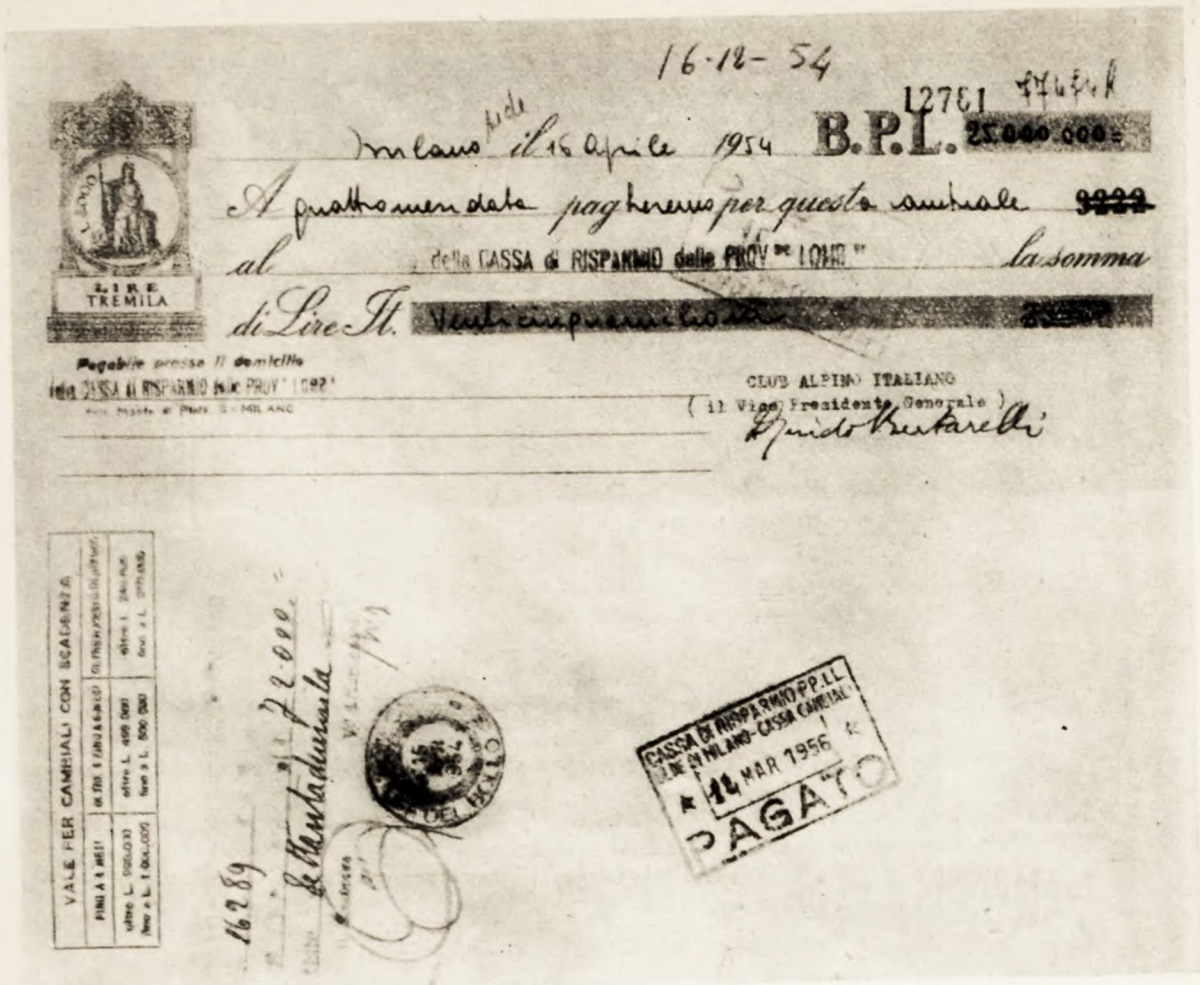 16-12-54
12781
Milano il 16 Aprile 1954 B.P.L. 25.000.000=
A quattro mesi data pagheremo per questa cambiale 9222
al della CASSA di RISPARMIO delle PROV LOMB la somma
di Lire It. Venticinquemilioni
LIRE
TREMILA
Pagabile presso il domicilio
della CASSA di RISPARMIO delle PROV LOMB
MILANO
CLUB ALPINO ITALIANO
( il Vice Presidente Generale )
Guido Bertarelli
VALE PER CAMBIALI CON SCADENZA
FINO A 4 MESI
oltre L. 900.000
fino a L. 1.000.000
oltre L. 400.000
fino a L. 500.000
16289
72.000=
settantaduemila
DEL BOLLO
CASSA DI RISPARMIO PP.LL.
SEDE DI MILANO-CASSA CAMBIALI
14 MAR 1956
PAGATO